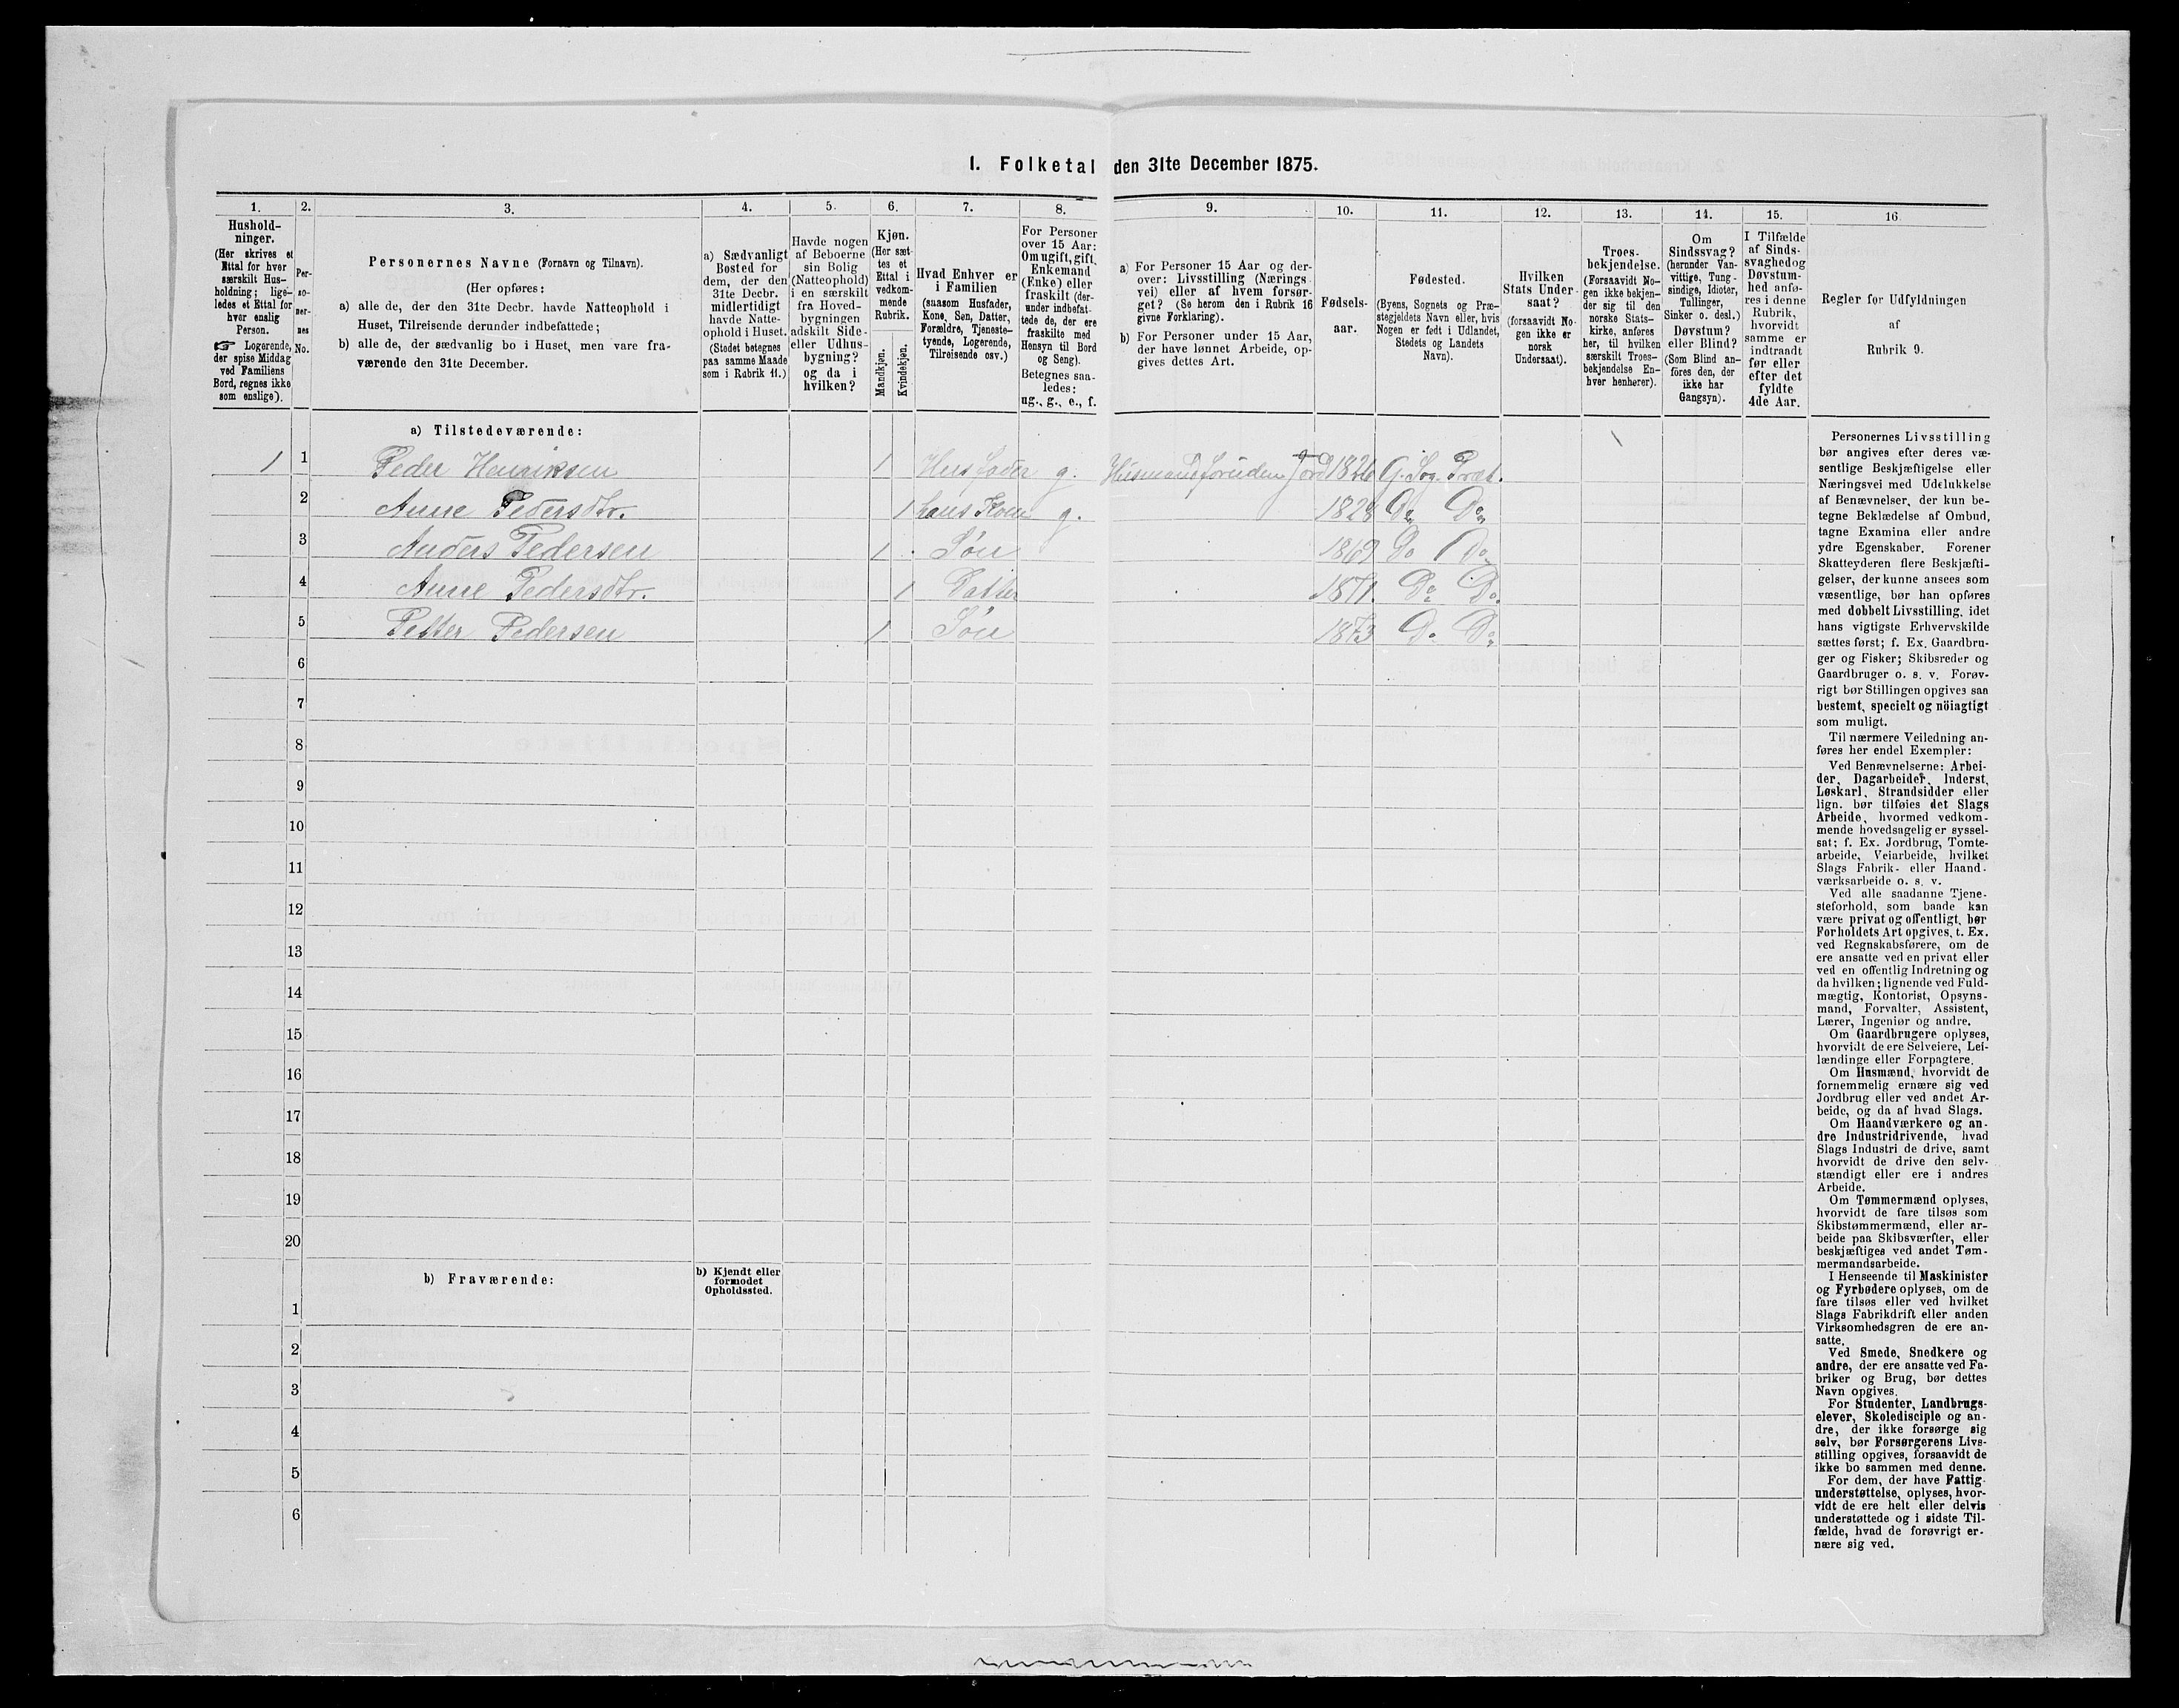 1. Folketal den 31te December 1875.
1. 2. 3. 4. 5. 6. 7. 8. 9. 10. 11. 12. 13. 14. 15. 16
Hushold-
ninger.
(Her skrives et
Ettal for hver
særskilt Hus-
holdning; lige-
ledes et Ettal for
hver enslig
Person.
☞ Logerende,
der spise Middag
ved Familiens
Bord, regnes ikke
som enslige).
Per-
so-
ner-
nes
No.
Personernes Navne (Fornavn og Tilnavn).
(Her opføres:
a) alle de, der den 31te Decbr. havde Natteophold i
Huset, Tilreisende derunder indbefattede;
b) alle de, der sædvanlig bo i Huset, men vare fra-
værende den 31te December.
a) Sædvanligt
Bosted for
dem, der den
31te Decbr.
midlertidigt
havde Natte-
ophold i Huset.
(Stedet betegnes
paa samme Maade
som i Rubrik 11.)
Havde nogen
af Beboerne
sin Bolig
(Natteophold)
i en særskilt
fra Hoved-
bygningen
adskilt Side-
eller Udhus-
bygning?
og da i
hvilken?
Kjøn.
(Her sæt-
tes et
Ettal i
vedkom-
mende
Rubrik.
Mandkjøn.
Kvindekjøn.
Hvad Enhver er
i Familien
(saasom Husfader,
Kone, Søn, Datter,
Forældre, Tjeneste-
tyende, Logerende,
Tilreisende osv.)
For Personer
over 15 Aar:
Om ugift, gift,
Enkemand
(Enke) eller
fraskilt (der-
under indbefat-
tede de, der ere
fraskilte med
Hensyn til Bord
og Seng).
Betegnes saa-
ledes:
ug., g., e., f.
a) For Personer 15 Aar og der-
over: Livsstilling (Nærings
vei) eller af hvem forsør-
get? (Se herom den i Rubrik 16
givne Forklaring).
b) For Personer under 15 Aar,
der have lønnet Arbeide, op-
gives dettes Art.
Fødsels-
aar.
Fødested.
(Byens, Sognets og Præ-
stegjeldets Navn eller, hvis
Nogen er født i Udlandet,
Stedets og Landets
Navn).
Hvilken
Stats Under-
saat?
(forsaavidt No-
gen ikke er
norsk
Undersaat).
Troes-
bekjendelse.
(Forsaavidt No-
gen ikke bekjen-
der sig til den
norske Stats-
kirke, anføres
her, til hvilken
særskilt Troes-
bekjendelse En-
hver henhører).
Om
Sindssvag?
(herunder Van-
vittige, Tung-
sindige, Idioter,
Tullinger,
Sinker o. desl.)
Døvstum?
eller Blind?
(Som Blind an-
føres den, der
ikke har
Gangsyn).
I Tilfælde
af Sinds-
svaghed og
Døvstum-
hed anfø-
res i denne
Rubrik,
hvorvidt
samme er
indtraadt
før eller
efter det
fyldte
4de Aar.
Regler for Udfyldningen
af
Rubrik 9.
a) Tilstedeværende:
1 1 Peder Henriksen 1 Husfader g. Husmand foruden Jord 1826 G. Sog. Præt.
2 Anne Pedersdtr. 1 hans Kone g. 1828 Do Do
3 Anders Pedersen 1 Søn 1869 Do Do
4 Anne Pedersdtr. 1 Datter 1871. Do Do
5 Petter Pedersen 1 Søn 1873 Do Do
6
7
8
9
10
11
12
13
14
15
16
17
18
19
20
b) Fraværende:
b) Kjendt eller
formodet
Opholdssted.
1
2
3
4
5
6
Personernes Livsstilling
bør angives efter deres væ-
sentlige Beskjæftigelse eller
Næringsvei med Udelukkelse
af Benævnelser, der kun be-
tegne Beklædelse af Ombud,
tagne Examina eller andre
ydre Egenskaber. Forener
Skatteyderen flere Beskjæfti-
gelser, der kunne ansees som
væsentlige, bør han opføres
med dobbelt Livsstilling, idet
hans vigtigste Erhvervskilde
sættes først; f. Ex. Gaardbru-
ger og Fisker; Skibsreder og
Gaardbruger o. s. v. Forøv-
rigt bør Stillingen opgives saa
bestemt, specielt og nöiagtigt
som muligt.
Til nærmere Veiledning an-
føres her endel Exempler:
Ved Benævnelserne: Arbei-
der, Dagarbeider, Inderst,
Løskarl, Strandsidder eller
lign. bør tilføies det Slags
Arbeide, hvormed vedkom-
mende hovedsagelig er syssel-
sat; f. Ex. Jordbrug, Tomte-
arbeide, Veiarbeide, hvilket
Slags Fabrik- eller Haand-
værksarbeide o. s. v.
Ved alle saadanne Tjene-
steforhold, som baade kan
være privat og offentligt, bør
Forholdets Art opgives, t. Ex.
ved Regnskabsførere, om de
ere ansatte ved en privat eller
ved en offentlig Indretning og
da hvilken; lignende ved Fuld-
mægtig, Kontorist, Opsyns-
mand, Forvalter, Assistent,
Lærer, Ingeniør og andre.
Om Gaardbrugere oplyses,
hvorvidt de ere Selveiere, Lei-
lændinge eller Forpagtere.
Om Husmænd, hvorvidt de
fornemmelig ernære sig ved
Jordbrug eller ved andet Ar-
beide, og da af hvad Slags.
Om Haandværkere og an-
dre Industridrivende, hvad
Slags Industri de drive, samt
hvorvidt de drive den selv-
stændigt eller ere i andres
Arbeide.
Om Tømmermænd oplyses,
hvorvidt de fare tilsøs som
Skibstømmermænd, eller ar-
beide paa Skibsværfter, eller
beskjæftiges ved andet Tøm-
mermandsarbeide.
I Henseende til Maskinister
og Fyrbødere oplyses, om de
fare tilsøs eller ved hvilket
Slags Fabrikdrift eller anden
Virksomhedsgren de ere an-
satte.
Ved Smede, Snedkere og
andre, der ere ansatte ved Fa-
briker og Brug, bør dettes
Navn opgives.
For Studenter, Landbrugs-
elever, Skoledisciple og an-
dre, der ikke forsørge sig
selv, bør Forsørgerens Livs-
stilling opgives, forsaavidt de
ikke bo sammen med denne.
For dem, der have Fattig-
understøttelse, oplyses, hvor-
vidt de ere helt eller delvis
understøttede og i sidste Til-
fælde, hvad de forøvrigt er-
nære sig ved.